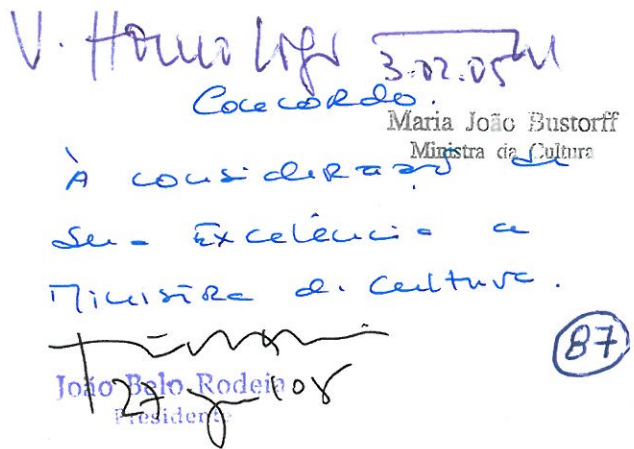 V. Homologo 3.02.05
Concordo.
Maria João Bustorff
Ministra da Cultura
À consideração de
Sua Excelência a
Ministra da Cultura.
87
João Belo Rodeia
Presidente
27